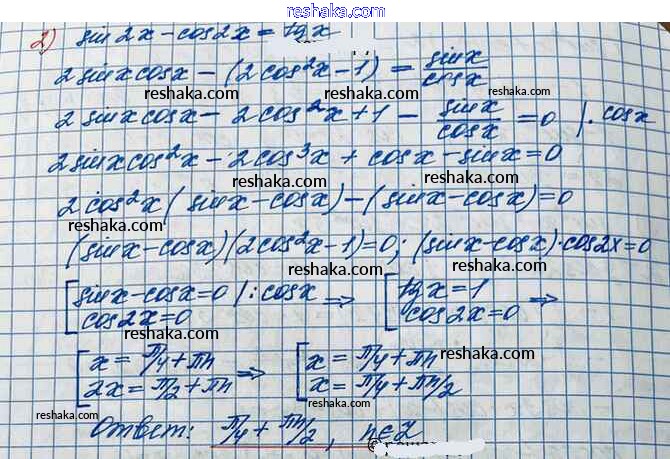 reshak.com
2) sin 2x - cos 2x = tg x
2 sin x cos x - (2 cos²x - 1) = sin x / cos x
reshaka.com reshaka.com
2 sin x cos x - 2 cos²x + 1 - sin x / cos x = 0 / · cos x
reshaka.com
2 sin x cos²x - 2 cos³x + cos x - sin x = 0
reshaka.com reshaka.com
2 cos²x (sin x - cos x) - (sin x - cos x) = 0
reshaka.com
(sin x - cos x)(2 cos²x - 1) = 0; (sin x - cos x) · cos 2x = 0
reshaka.com reshaka.com
[ sin x - cos x = 0 / : cos x ⇒ [ tg x = 1 ⇒
cos 2x = 0 cos 2x = 0
reshaka.com
[ x = π/4 + πn ⇒ [ x = π/4 + πn
reshaka.com
2x = π/2 + πn x = π/4 + πn/2
reshaka.com reshaka.com
Ответ: π/4 + πn/2, n ∈ Z
reshaka.com